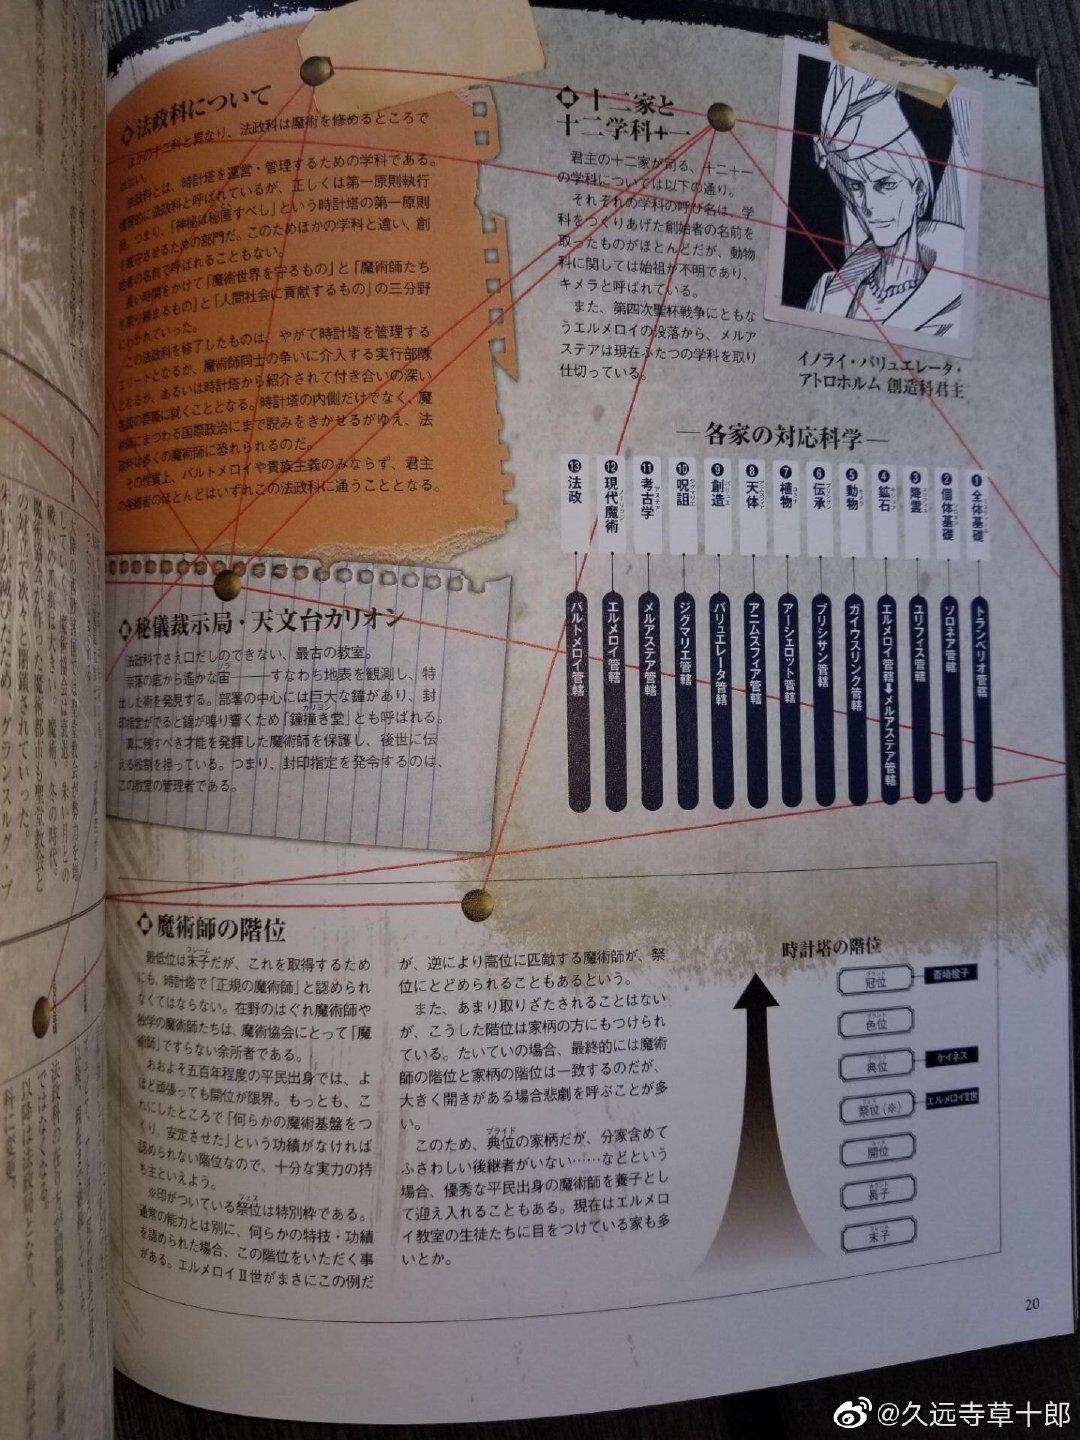 法政科について
ほかの十二科と異なり、法政科は魔術を修めるところで
はない。
法政科とは、時計塔を運営・管理するための学科である。
慣習的に法政科と呼ばれているが、正しくは第一原則執行
局。つまり、「神秘は秘匿すべし」という時計塔の第一原則
を厳守させるための部門だ。このためほかの学科と違い、創
始者の名前で呼ばれることもない。
長い時間をかけて「魔術世界を守るもの」と「魔術師たち
を取り締まるもの」と「人間社会に貢献するもの」の三分野
にわかれていった。
この法政科を修了したものは、やがて時計塔を管理する
エリートとなるか、魔術師同士の争いに介入する実行部隊
となるか、あるいは時計塔から紹介されて付き合いの深い
各国の要職に就くこととなる。時計塔の内側だけでなく、魔
術師にまつわる国際政治にまで睨みをきかせるがゆえ、法
政科は多くの魔術師に恐れられるのだ。
その性質上、バルトメロイや貴族主義のみならず、君主
の後継者のほとんどはいずれこの法政科に通うこととなる。
秘儀裁示局・天文台カリオン
法政科でさえ口だしのできない、最古の教室。
奈落の底から遙かな宙――すなわち地表を観測し、特
出した術を発見する。部署の中心には巨大な鐘があり、封
印指定がでると鐘が鳴り響くため「鐘撞き堂」とも呼ばれる。
真に残すべき才能を発揮した魔術師を保護し、後世に伝
える役割を担っている。つまり、封印指定を発令するのは、
この教室の管理者である。
十二家と
十二学科+一
君主の十二家が司る、十二+一
の学科については以下の通り。
それぞれの学科の呼び名は、学
科をつくりあげた創始者の名前を
取ったものがほとんどだが、動物
科に関しては始祖が不明であり、
キメラと呼ばれている。
また、第四次聖杯戦争にともな
うエルメロイの没落から、メルア
ステアは現在ふたつの学科を取り
仕切っている。
イノライ・バリュエレータ・
アトロホルム 創造科君主
―各家の対応科学―
❶全体基礎
トランベリオ管轄
❷個体基礎
ソロネア管轄
❸降霊
ユリフィス管轄
❹鉱石
エルメロイ管轄➡メルアステア管轄
❺動物
ガイウスリンク管轄
❻伝承
ブリシサン管轄
❼植物
アーシェロット管轄
❽天体
アニムスフィア管轄
❾創造
バリュエレータ管轄
❿呪詛
ジグマリエ管轄
⓫考古学
メルアステア管轄
⓬現代魔術
エルメロイ管轄
⓭法政
バルトメロイ管轄
魔術師の階位
最低位は末子だが、これを取得するため
にも、時計塔で「正規の魔術師」と認められ
なくてはならない。在野のはぐれ魔術師や
独学の魔術師たちは、魔術協会にとって「魔
術師」ですらない余所者である。
おおよそ五百年程度の平民出身では、よ
ほど頑張っても開位が限界。もっとも、こ
れにしたところで「何らかの魔術基盤をつ
くり、安定させた」という功績がなければ
認められない階位なので、十分な実力の持
ち主といえよう。
※印がついている祭位は特別枠である。
通常の能力とは別に、何らかの特技・功績
を認められた場合、この階位をいただく事
がある。エルメロイⅡ世がまさにこの例だ
が、逆により高位に匹敵する魔術師が、祭
位にとどめられることもあるという。
また、あまり取りざたされることはない
が、こうした階位は家柄の方にもつけられ
ている。たいていの場合、最終的には魔術
師の階位と家柄の階位は一致するのだが、
大きく開きがある場合悲劇を呼ぶことが多
い。
このため、典位の家柄だが、分家含めて
ふさわしい後継者がいない……などという
場合、優秀な平民出身の魔術師を養子とし
て迎え入れることもある。現在はエルメロ
イ教室の生徒たちに目をつけている家も多
いとか。
時計塔の階位
冠位
蒼崎橙子
色位
典位
ケイネス
祭位(※)
エルメロイⅡ世
開位
長子
末子
20
@久远寺草十郎